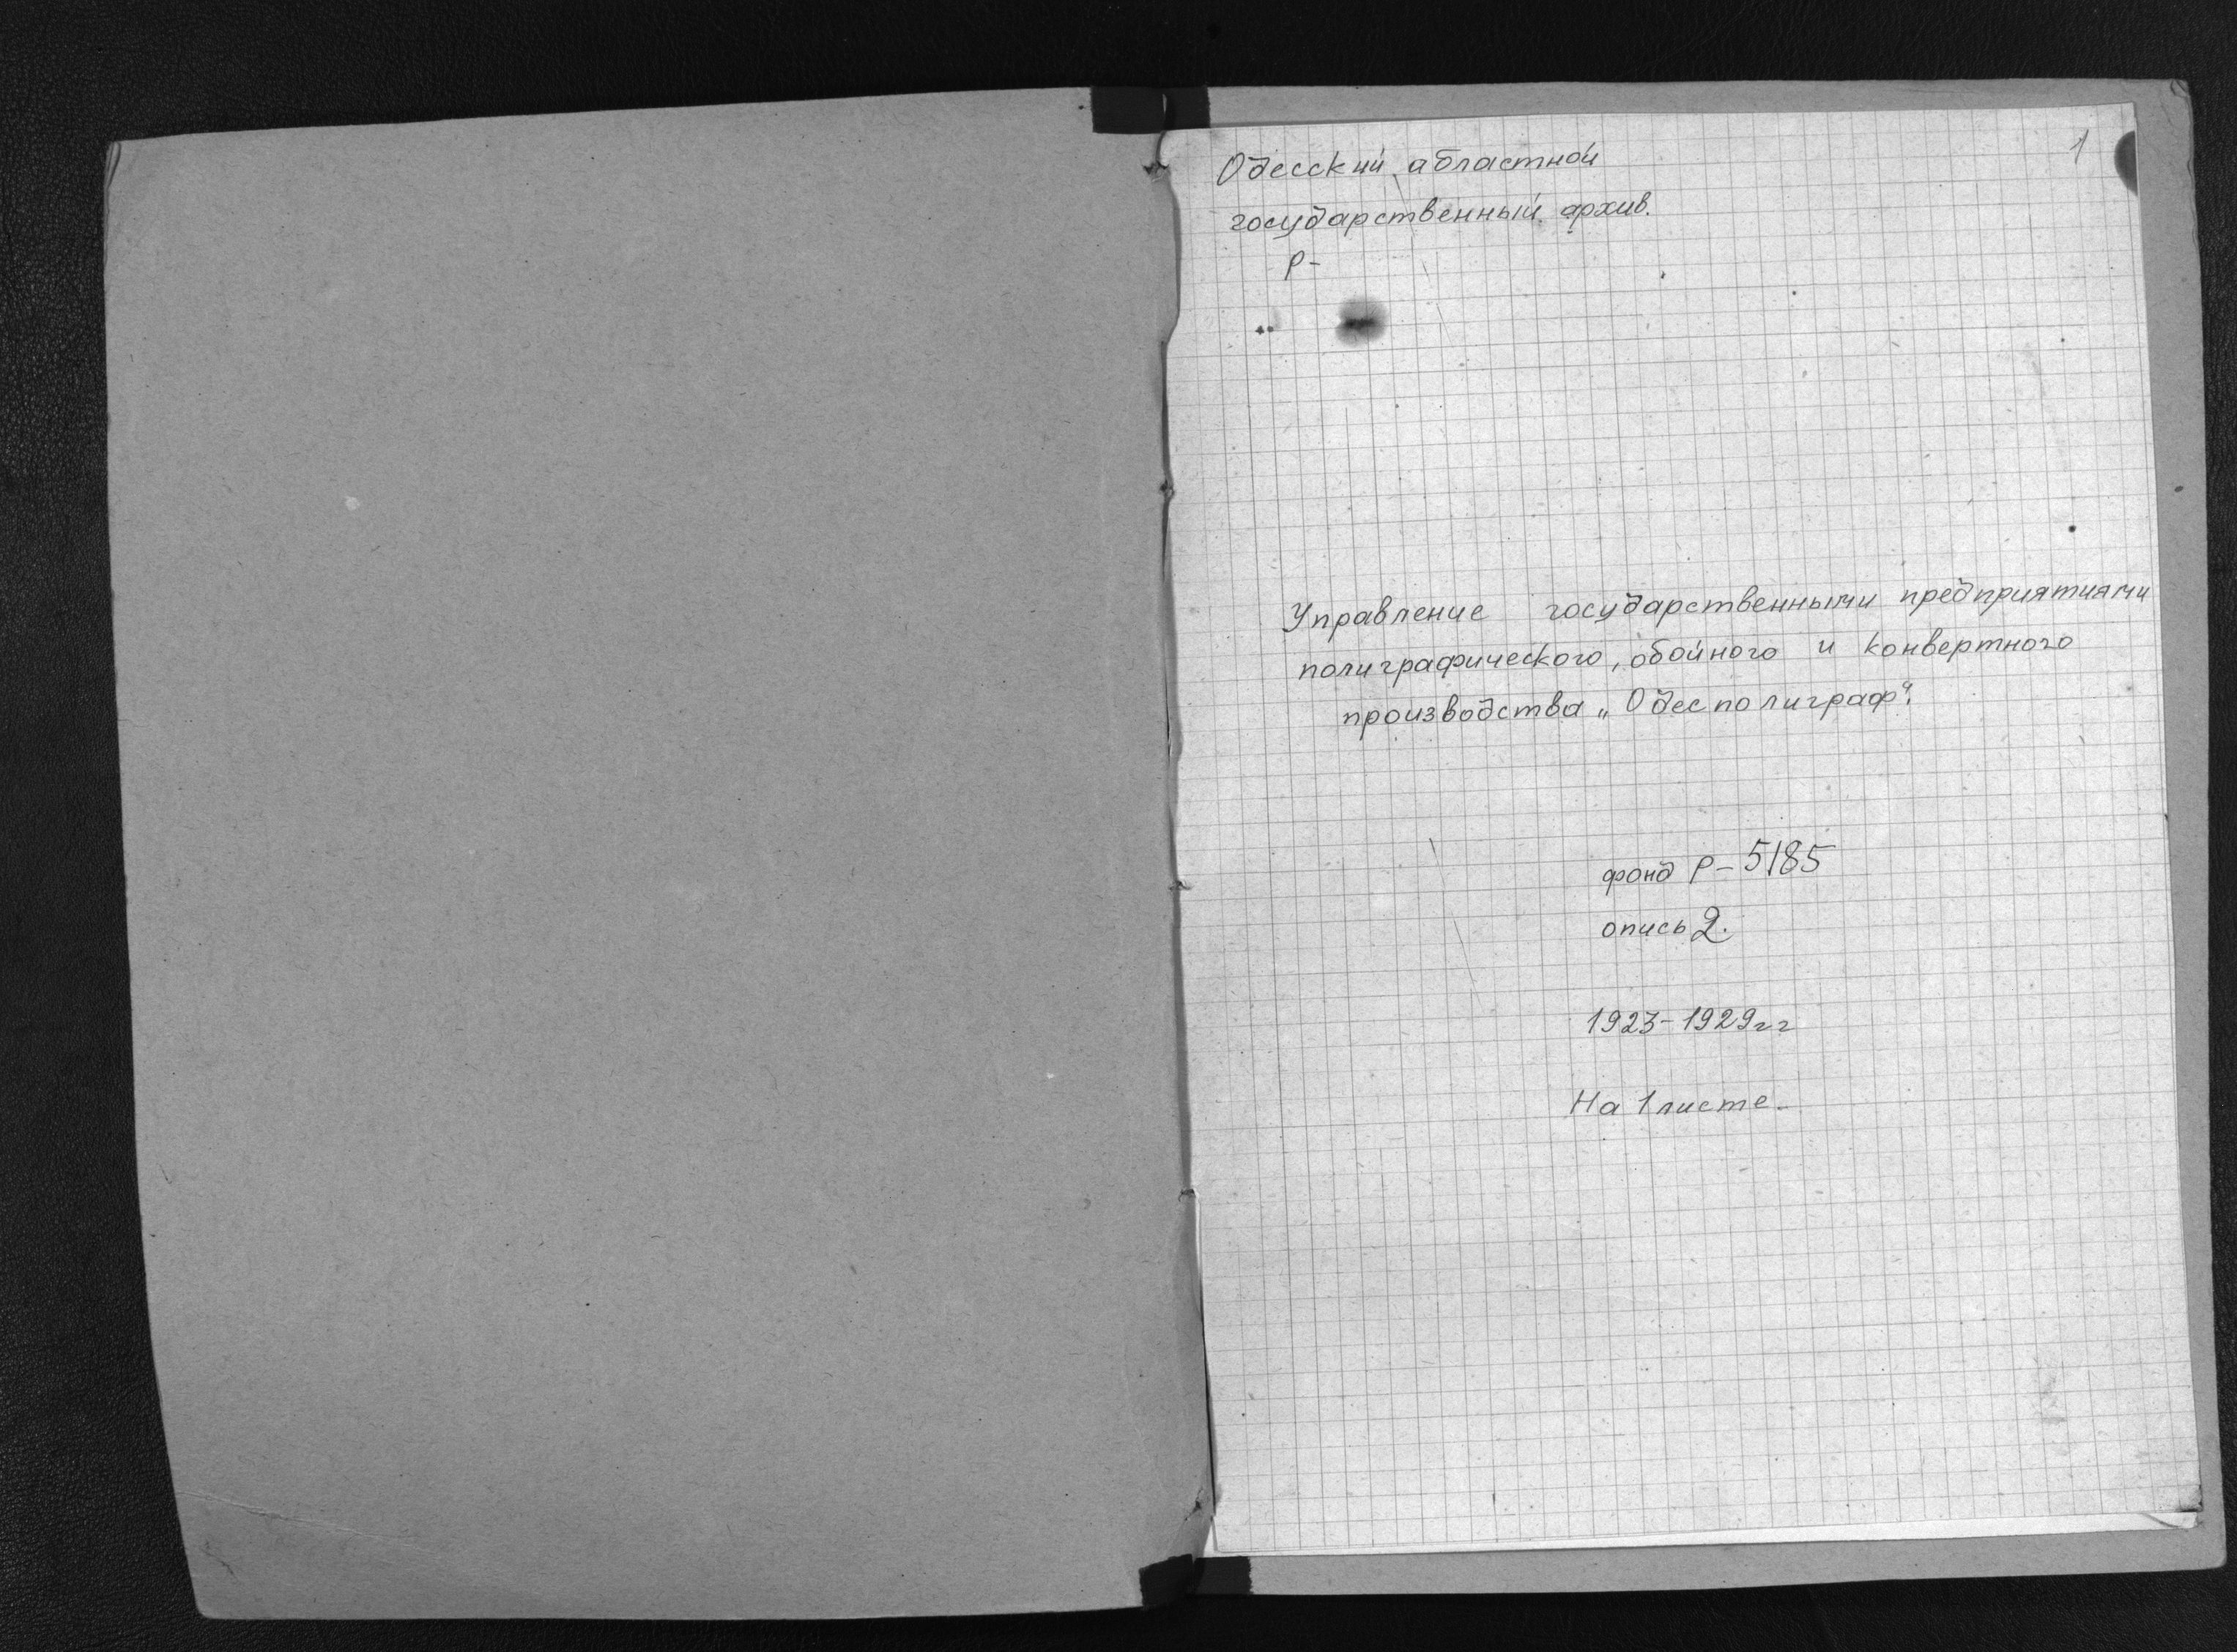 1
Одесский абластной
государственный архив.
Р-
Управление государственными предприятиями
полиграфического, обойного и конвертного
производства „Одесполиграф“.
фонд Р-5185
опись 2.
1923-1929гг
На 1 листе.